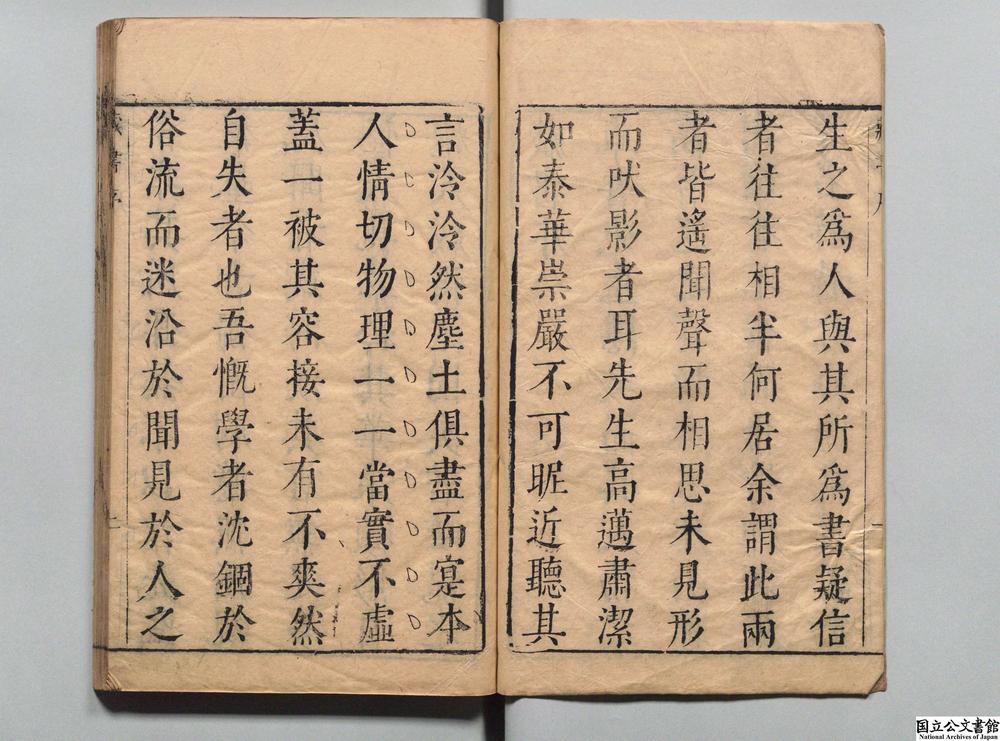 生之爲人與其所爲書疑信
者往往相半何居余謂此兩
者皆遙聞聲而相思未見形
而吠影者耳先生高邁肅潔
如泰華崇嚴不可昵近聽其
言泠泠然塵土俱盡而寔本
人情切物理一一當實不虛
蓋一被其容接未有不爽然
自失者也吾慨學者沈錮於
俗流而迷沿於聞見於人之
国立公文書館
National Archives of Japan